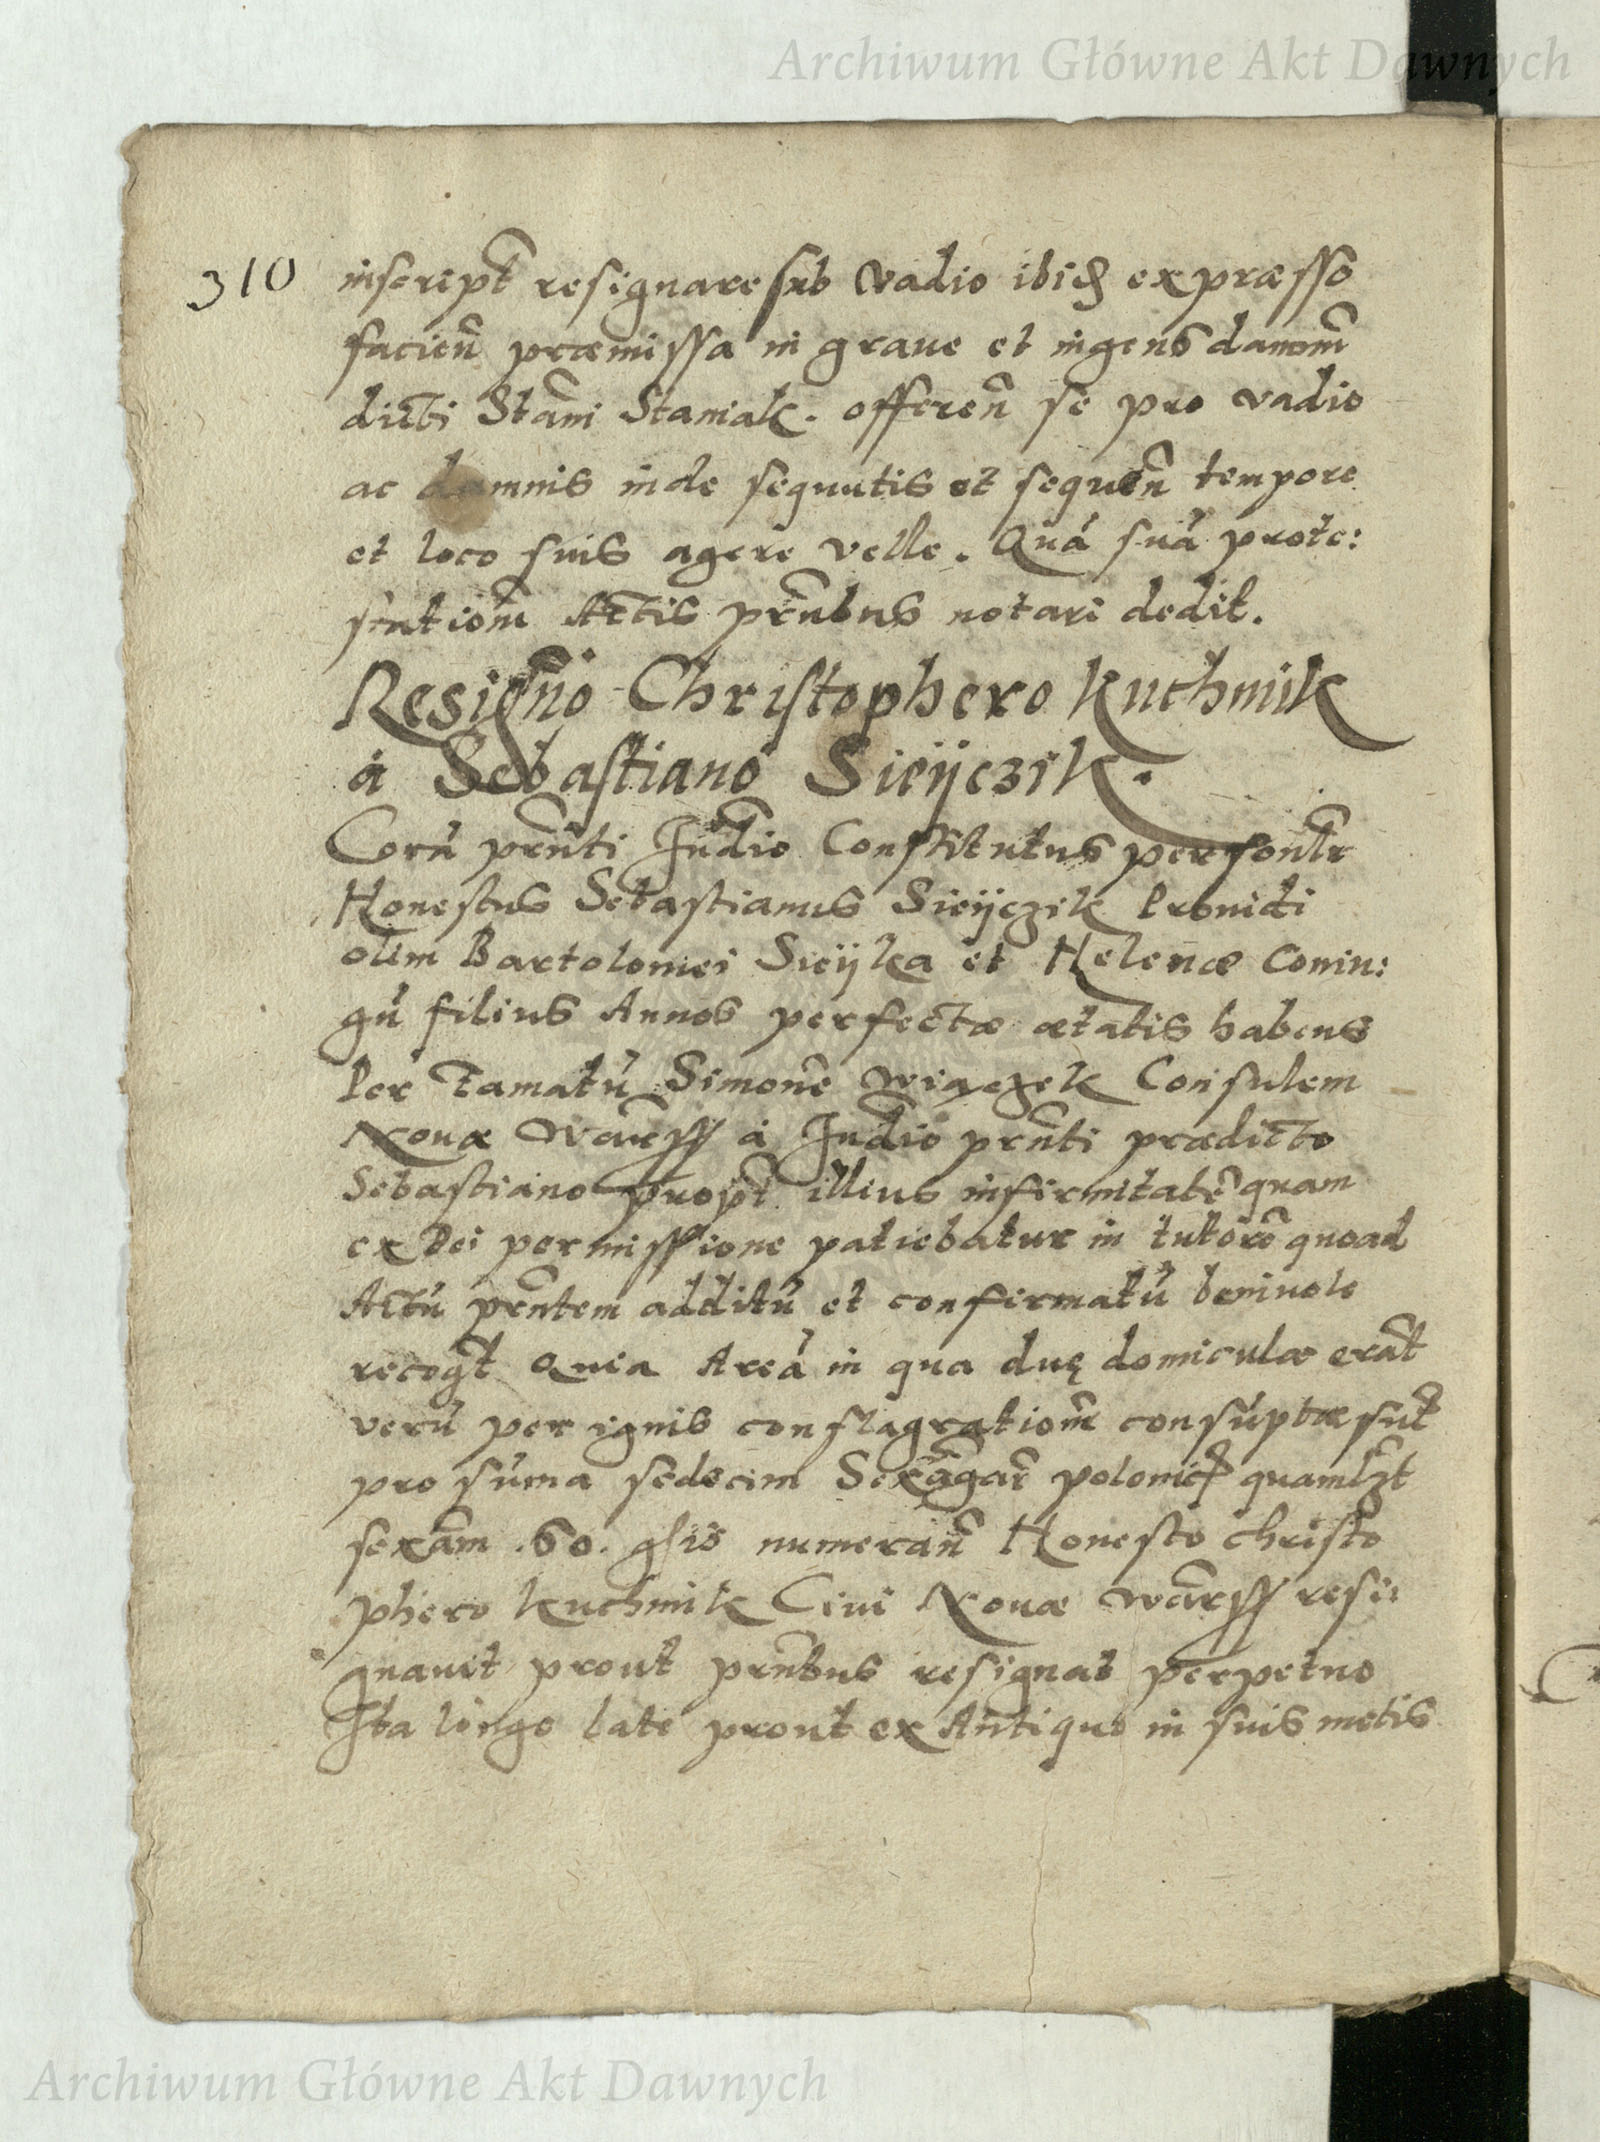 Archiwum Główne Akt Dawnych
310
inscript̃ resignare sub vadio ibid expræsso
facieñ præmissa in graue et ingens damnm̃
dicti Stãni Staniak. offereñ se pro vadio
ac damnis inde sequutis et sequeñ tempore
et loco suis agere velle. Quá suá prote:
stationm̃ Actis prñbus notari dedit.
Resignõ Christophero Kuchmik
á Sebastiano Sieijczik.
Corá prñti Judõ Constitutus personlr̃
Honestus Sebastianus Sieijczik Prouidi
olim Bartolomei Sieijka et Helenæ Coniu:
gú filius Annos perfectæ ætatis habens
Per Famatú Simonẽ Wiączek Consulem
Nouæ Warss̃ á Judõ prñti prædicto
Sebastiano propt̃ illius infirmitatẽ quam
ex Dei permissione patiebatur in tutorẽ quoad
Actú prñtem additú et confirmatú beniuole
recogt̃ Quia Areá in qua duę domiculæ erãt
verú per ignis conflagrationm̃ consúptæ sũt
pro súma sedecim Sexagãr polonic̃ quamlzt̃
sexãm .60. g̃sis numerañ Honesto Christo
phero Kuchmik Ciui Nouæ Warss̃ resi:
gnauit prout prñtbus resignat perpetuo
Ita longe late prout ex Antiquo in suis metis
Archiwum Główne Akt Dawnych